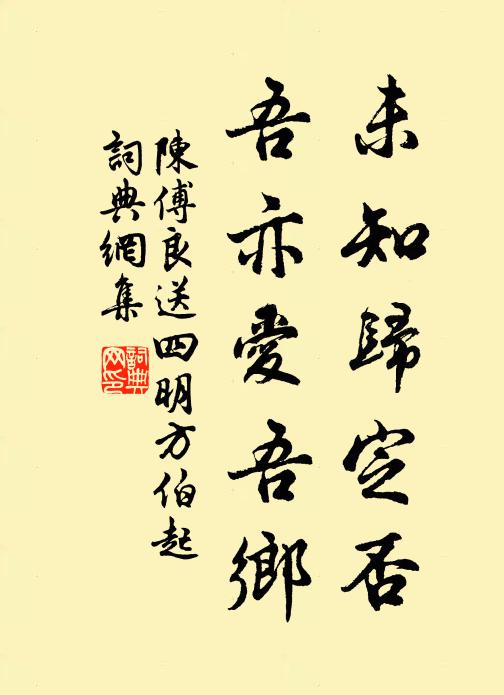 未知歸定否
吾亦愛吾鄉
陳傅良送四明方伯起
詞典網集
詞典网印